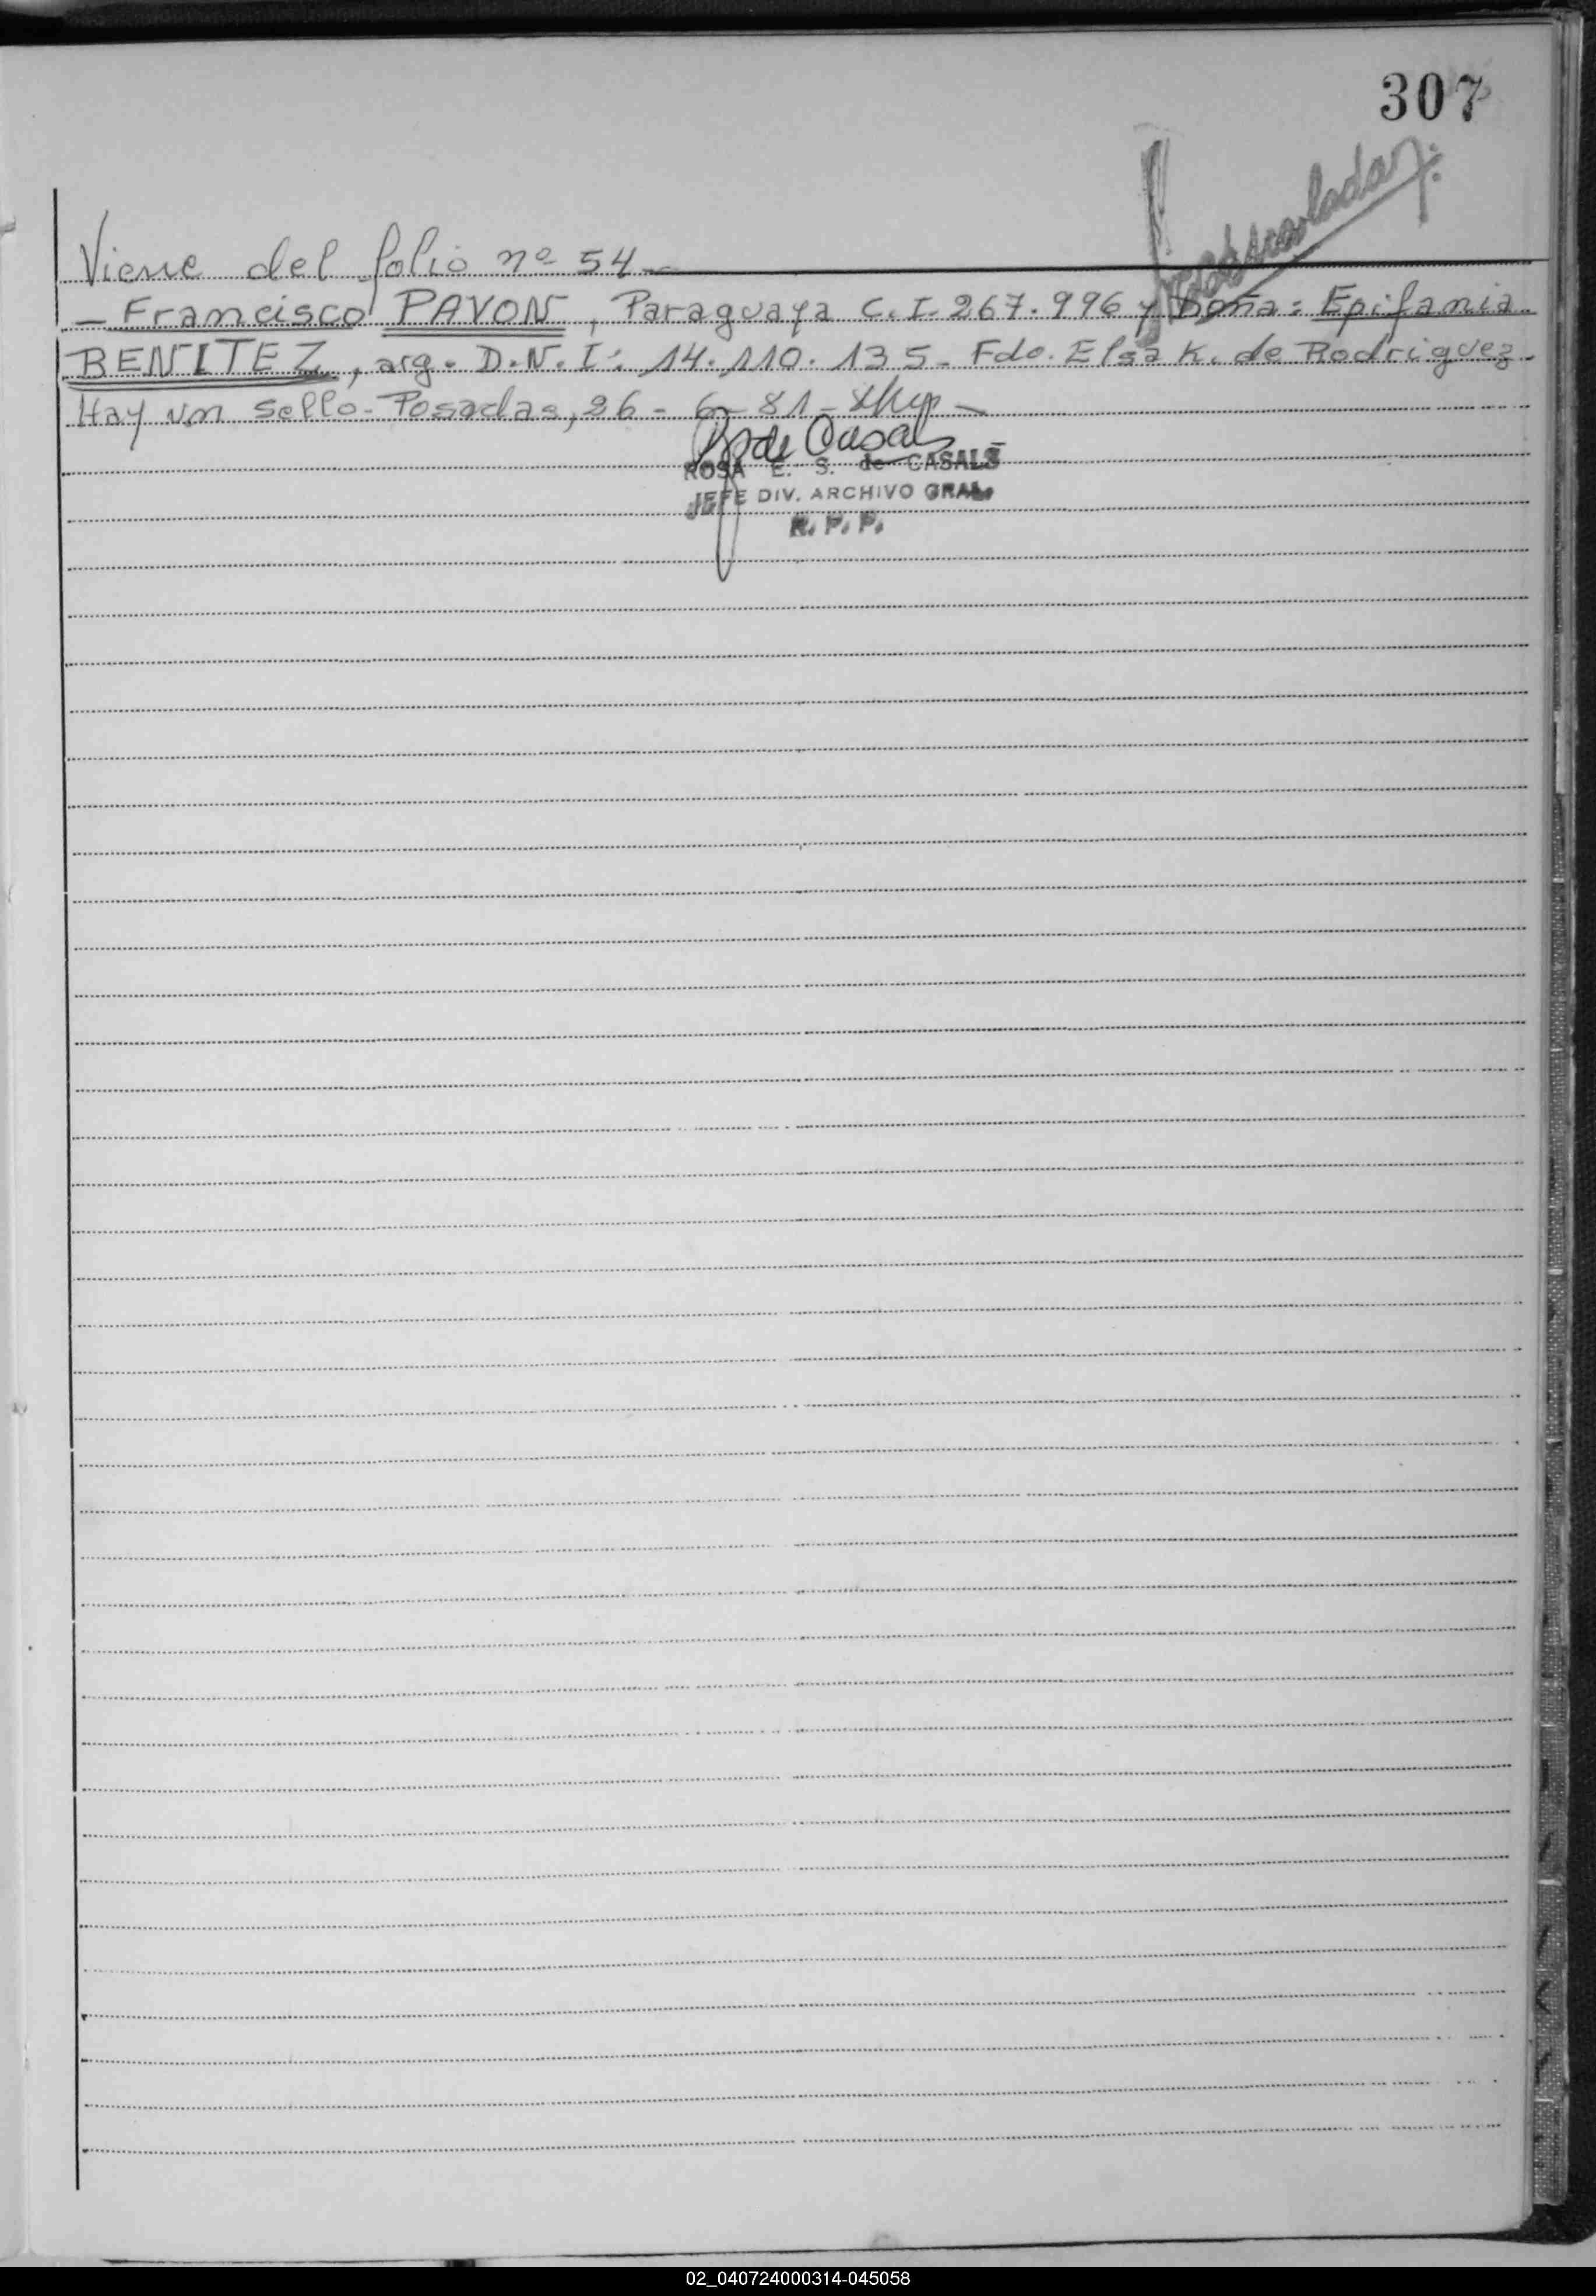 307
Viene del folio nº 54
- Francisco PAVON, Paraguaya C.I. 267.996 y Doña: Epifania
BENITEZ, arg. D.N.I: 14.110.135- Fdo. Elsa K. de Rodriguez.
Hay un sello- Posadas, 26 - 6 - 81 -
de Casals
ROSA E. S. de CASALS
JEFE DIV. ARCHIVO GRAL.
R. P. P.
02_040724000314-045058